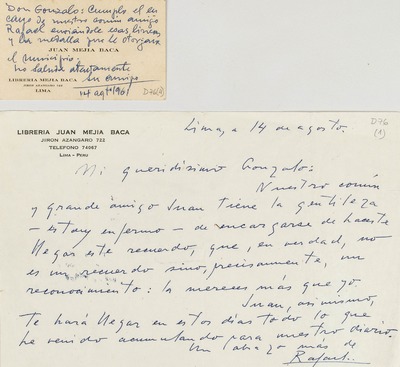 Don Gonzalo: Cumplo el en
cargo de nuestro común amigo
Rafael enviándole esas líneas
y la medalla que le otorgara
el municipio.
JUAN MEJIA BACA
lo saluda atentamente
LIBRERIA JUAN MEJIA BACA
su amigo
JIRON AZANGARO 722
LIMA
14 agto 1961
D76(2)
LIBRERIA JUAN MEJIA BACA
JIRON AZANGARO 722
TELEFONO 74067
LIMA - PERU
Lima, a 14 de agosto.
D76
(1)
Mi queridísimo Gonzalo:
Nuestro común
y grande amigo Juan tiene la gentileza
- estoy enfermo - de encargarse de hacerte
llegar este recuerdo, que, en verdad, no
es un recuerdo sino, precisamente, un
reconocimiento: la mereces más que yo.
Juan, asimismo,
te hará llegar en estos días todo lo que
he venido acumulando para nuestro diario.
Un abrazo más de
Rafael.